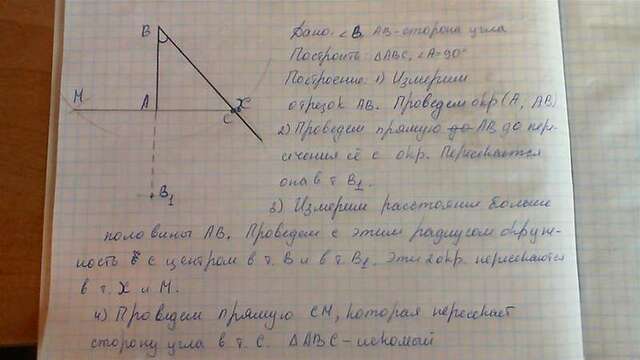 Дано: ∠B, AB-сторона угла
Построить: ΔABC, ∠A=90°
Построение: 1) Измерим
отрезок AB. Проведем окр(A, AB)
2) Проведем прямую до AB до пере-
сечения её с окр. Пересекается
она в т. B₁.
3) Измерим расстояния больше
половины AB. Проведем с этим радиусом окруж-
ность с с центром в т. B и в т. B₁. Эти 2 окр. пересекаются
в т. X и M.
4) Проведем прямую CM, которая пересекает
сторону угла в т. C. ΔABC-искомый
B
M
A
X
C
B₁